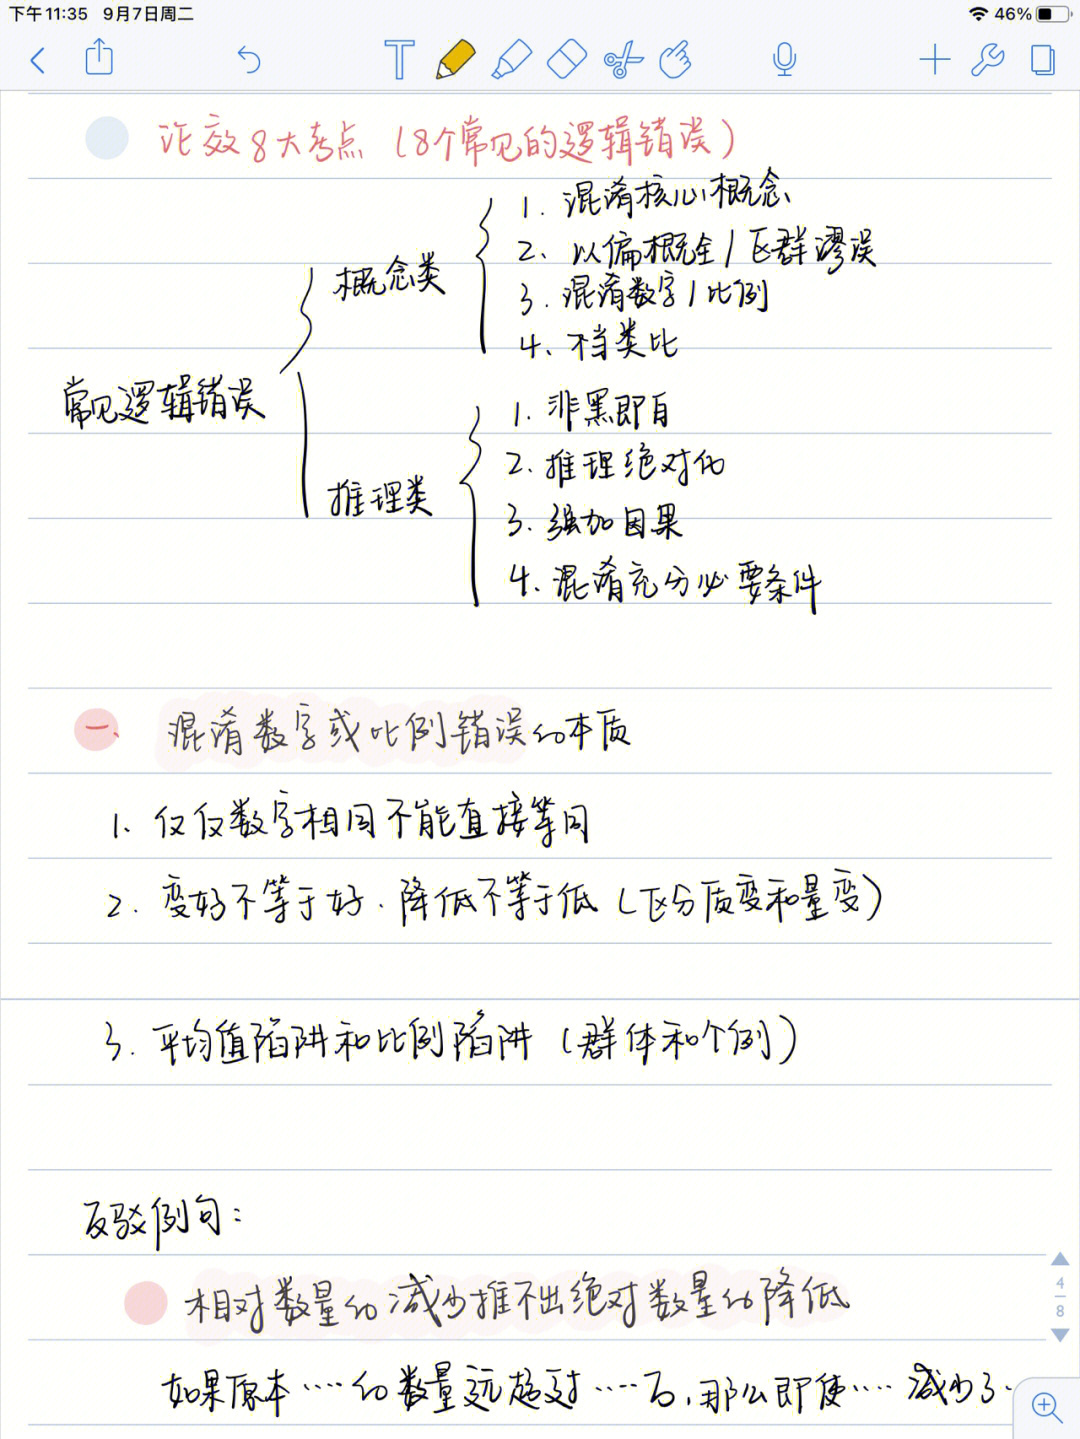 下午11:35 9月7日周二 46%
论效8大考点（8个常见的逻辑错误）
常见逻辑错误
概念类
1. 混淆核心概念
2、以偏概全/区群谬误
3. 混淆数字/比例
4、不当类比
推理类
1. 非黑即白
2. 推理绝对化
3. 强加因果
4. 混淆充分必要条件
一、混淆数字或比例错误的本质
1、仅仅数字相同不能直接等同
2. 变好不等于好. 降低不等于低（区分质变和量变）
3. 平均值陷阱和比例陷阱（群体和个例）
反驳例句：
相对数量的减少推不出绝对数量的降低
如果原本……的数量远超过……的,那么即使……减少了…
4
8